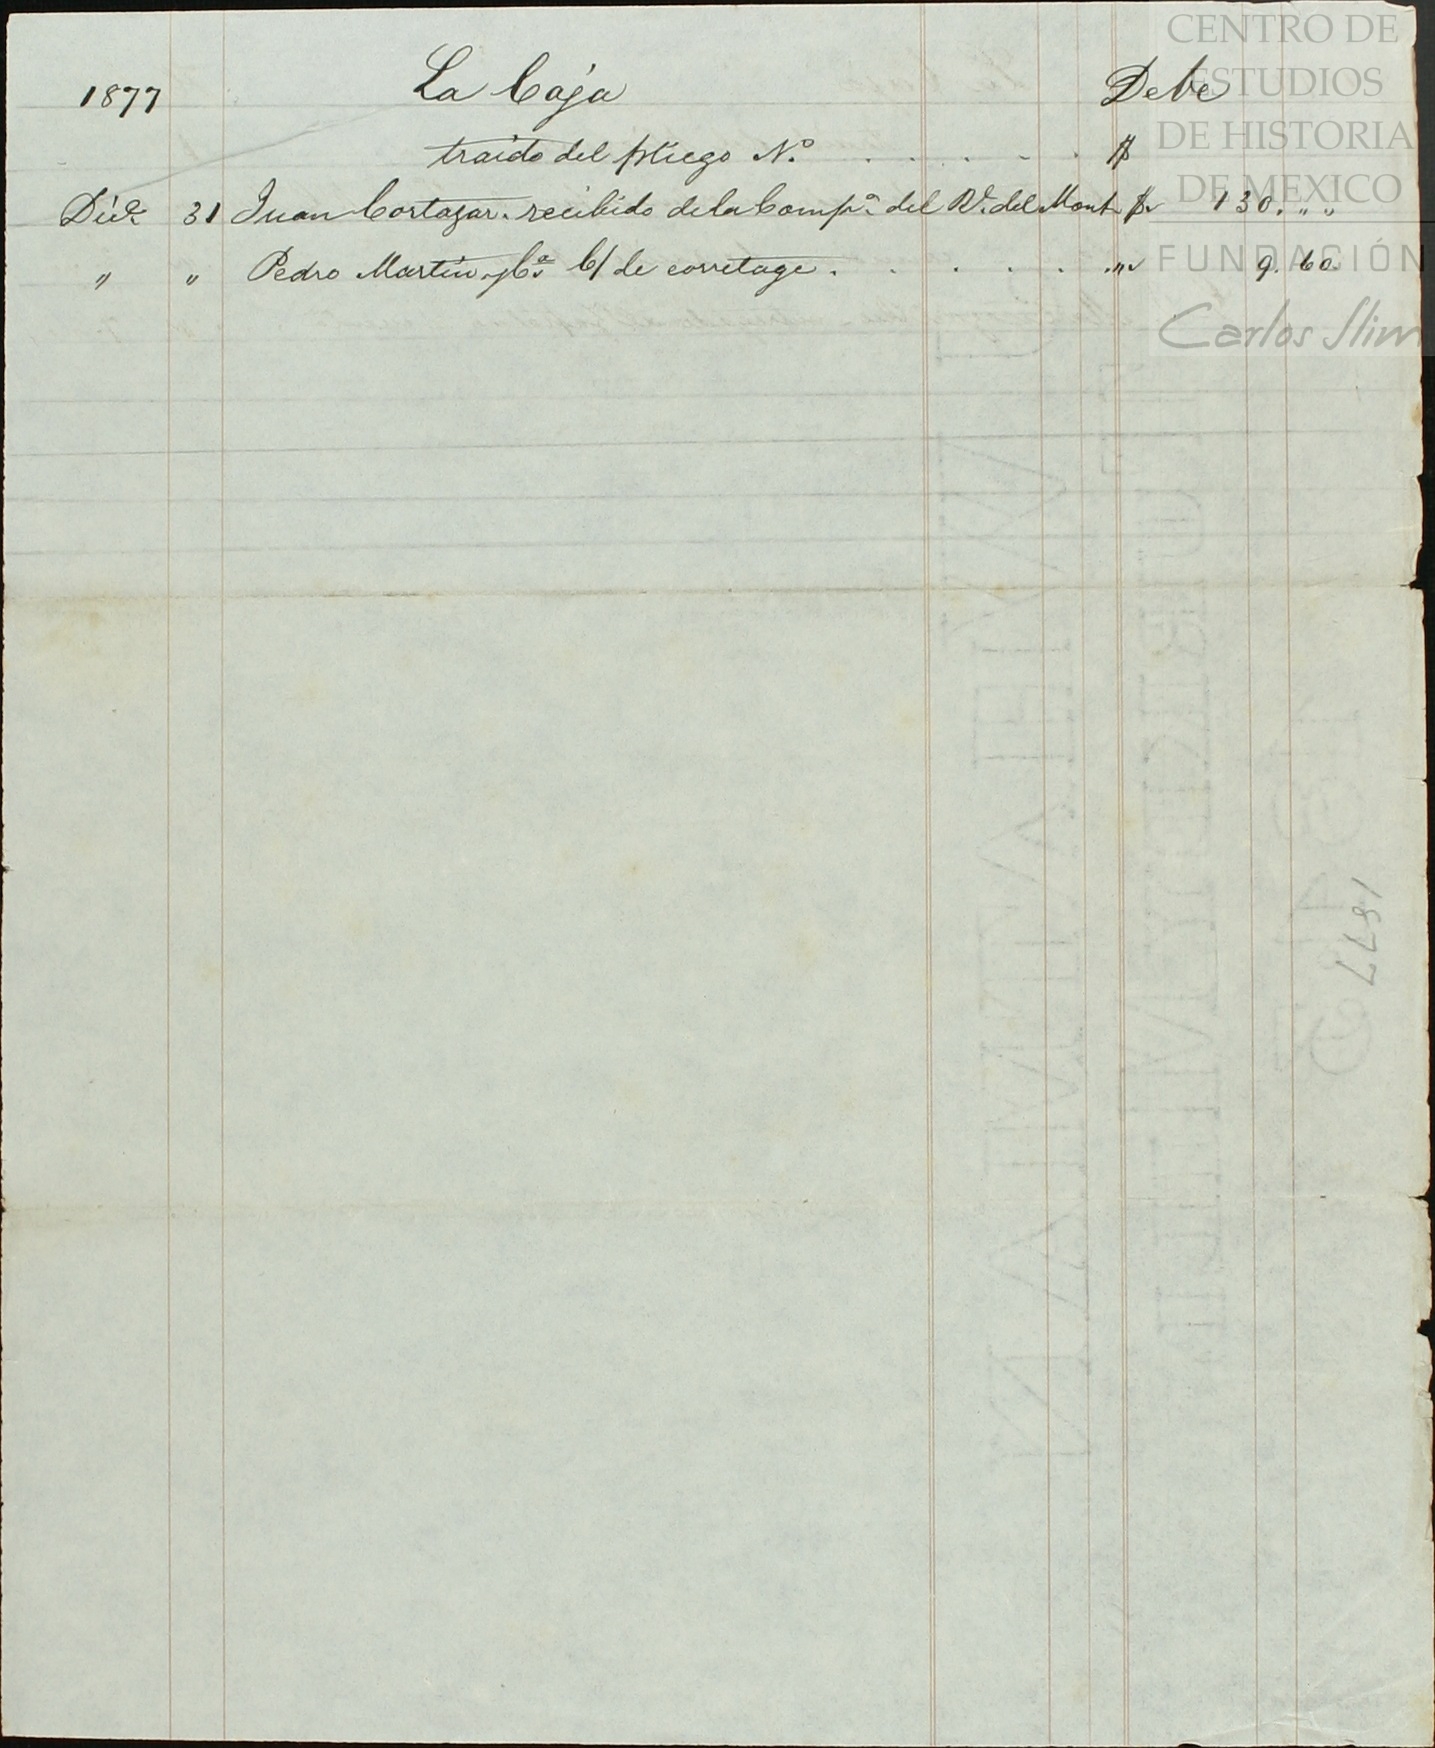 CENTRO DE
ESTUDIOS
DE HISTORIA
DE MEXICO
FUNDACIÓN
Carlos Slim
1877 La Caja Debe
traido del pliego N.º . . . . . $
Dic.e 31 Juan Cortazar. recibido de la Comp.a del R. del Mont $ 130. „ „
„ „ Pedro Martin y C.a C/ de corretage . . . . . . „ 9. 60.
1877